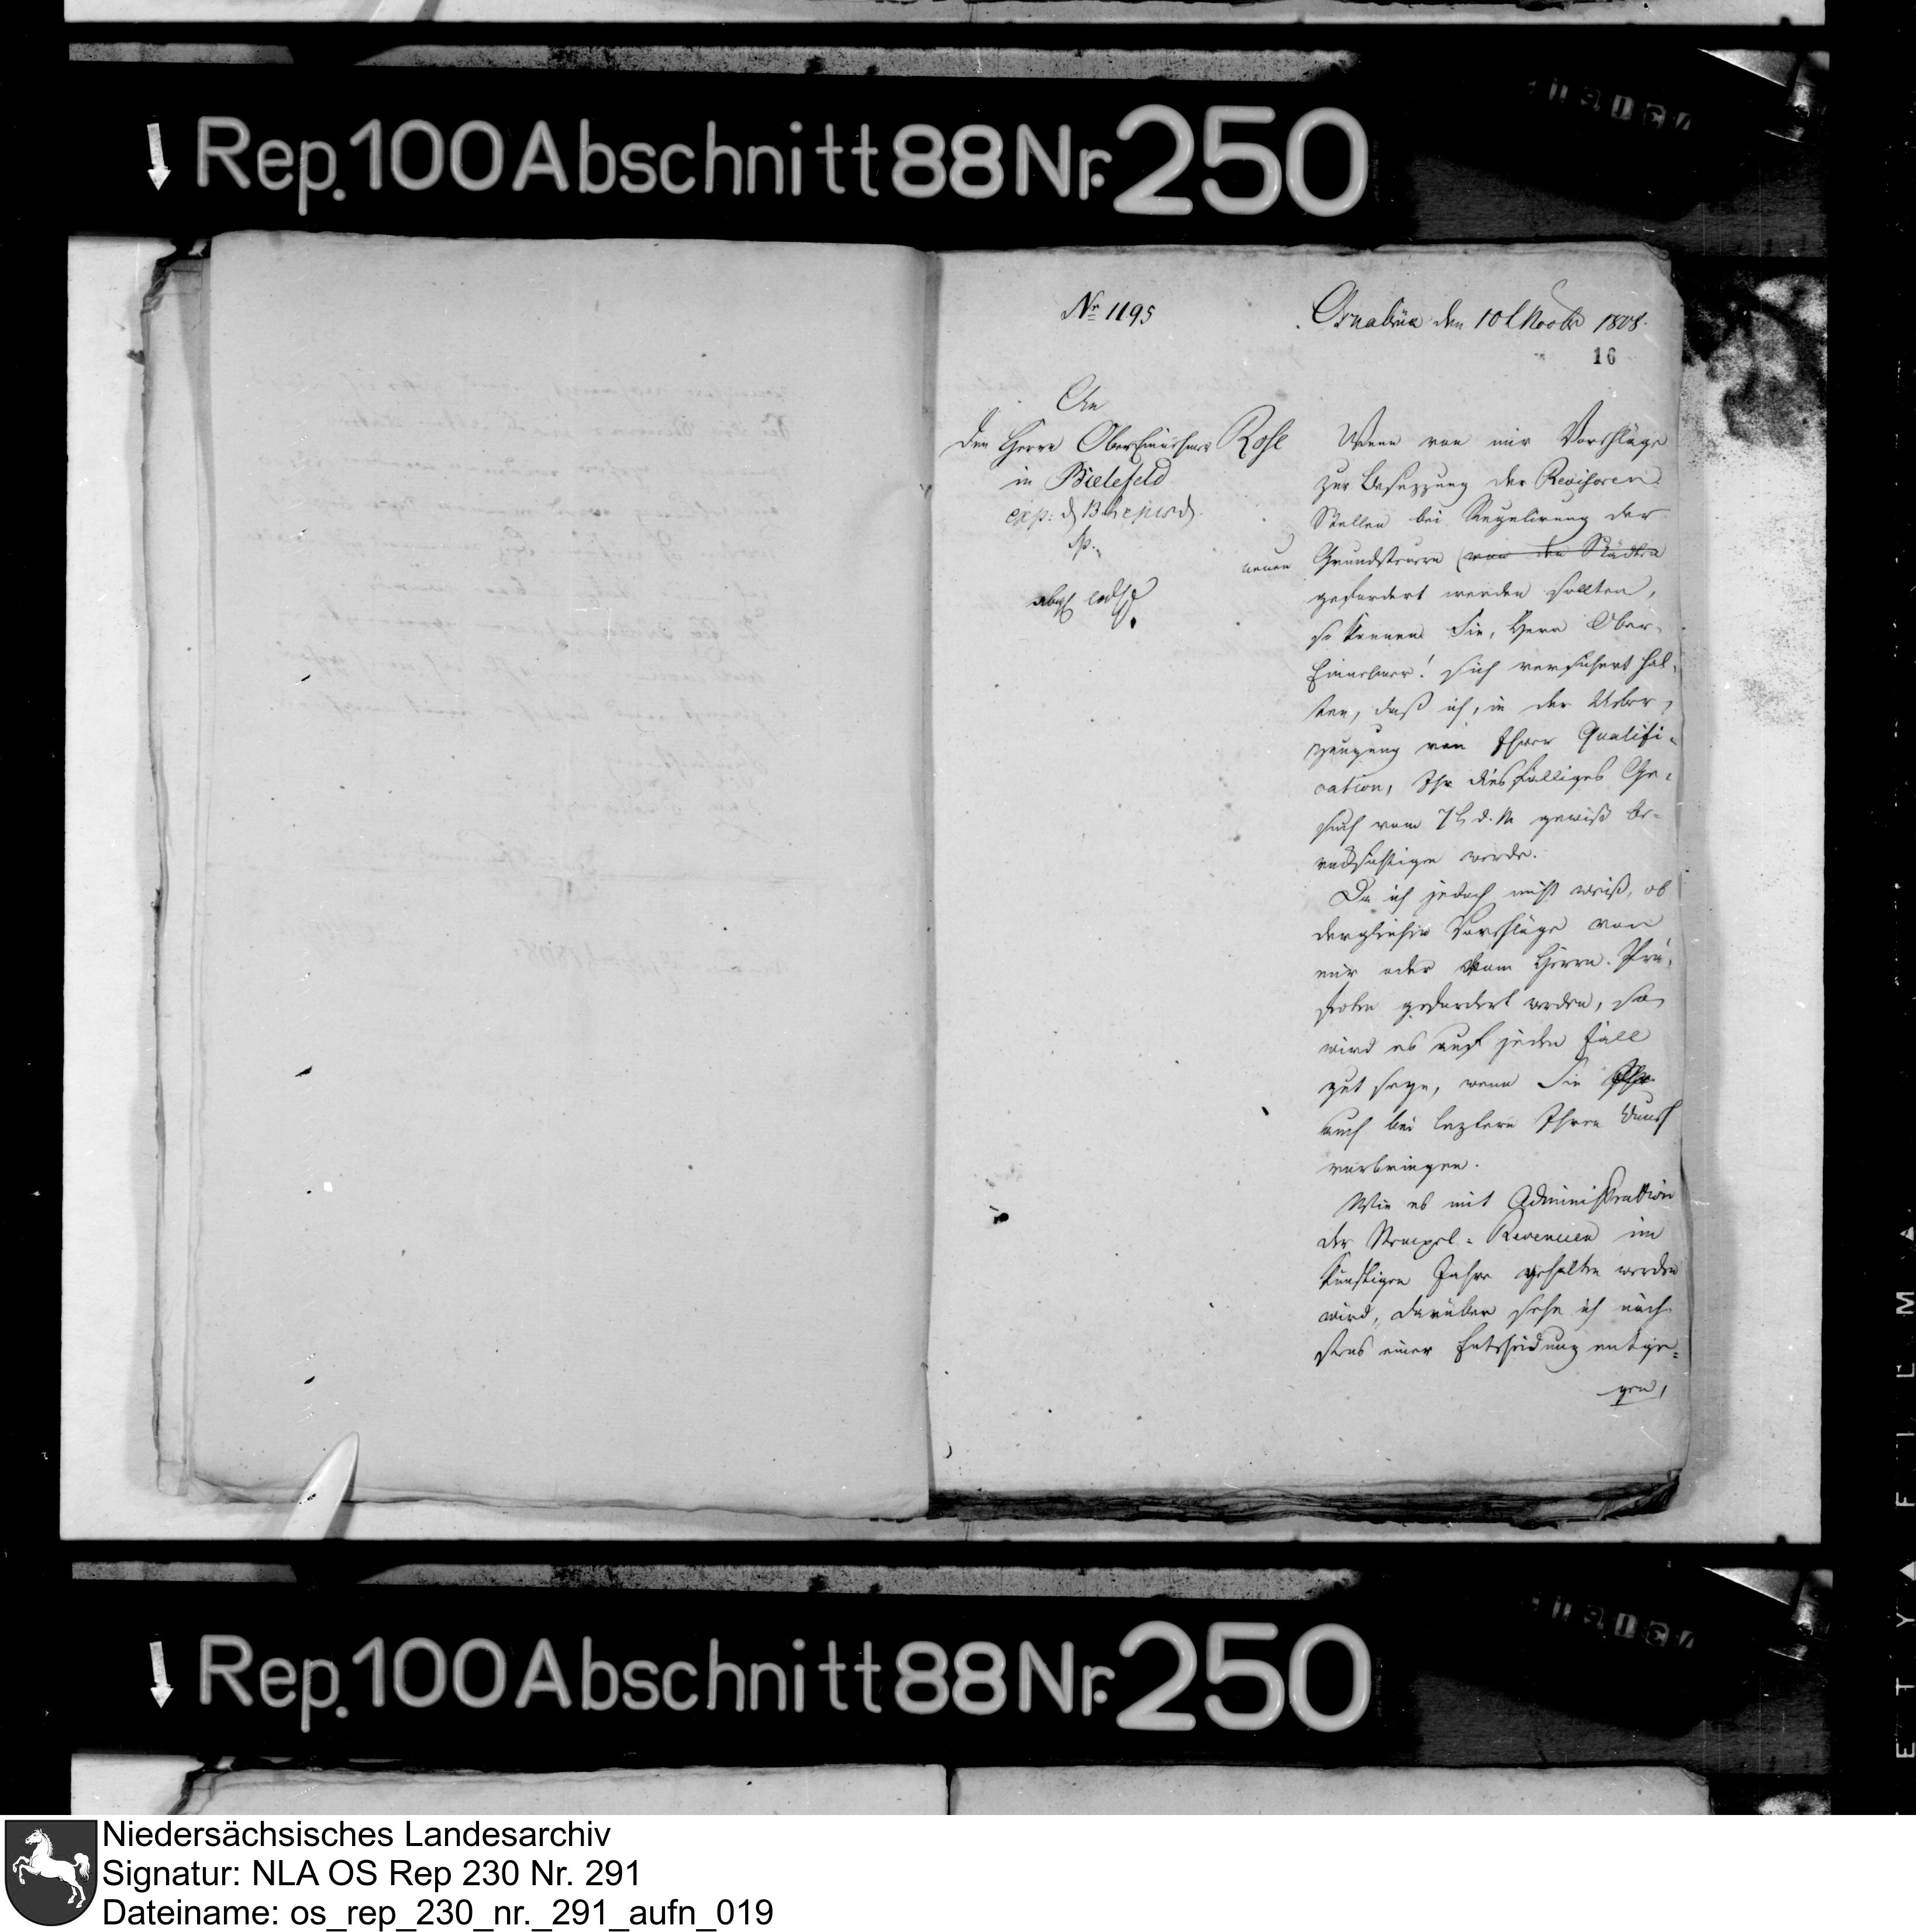 Rep. 100 Abschnitt 88 Nr. 250
Nr. 1195
Osnabrück den 10t Novbr 1808.
16
An
den Herrn OberEinnehmer Rose
in Bielefeld
exp: d 13t
neuen
Wenn von mir Vorschläge
zur Besezzung der Revisoren
Stellen bei Regulirung der
Grundsteuern (von den Städten
gefordert werden sollten,
so können Sie, Herr Ober-
Einnehmer! sich versichert hal-
ten, daß ich, in der Ueber-
zeugung von Ihrer Qualifi-
cation, Ihr diesfälliges Ge-
such vom 7t d. M gewiß be-
rücksichtigen werde.
Da ich jedoch nicht weiß, ob
dergleichen Vorschläge von
mir oder vom Herrn Prä-
fekten gefordert werden, so
wird es auf jeden Fall
gut seyn, wenn Sie Ihr
auch bei lezterm Ihren Wunsch
vorbringen.
Wie es mit Administration
der Stempel-Revenuen im
künftigen Jahre gehalten werden
wird, darüber sehe ich näch-
stens einer Entscheidung entge-
gen,
Rep. 100 Abschnitt 88 Nr. 250
Niedersächsisches Landesarchiv
Signatur: NLA OS Rep 230 Nr. 291
Dateiname: os_rep_230_nr._291_aufn_019